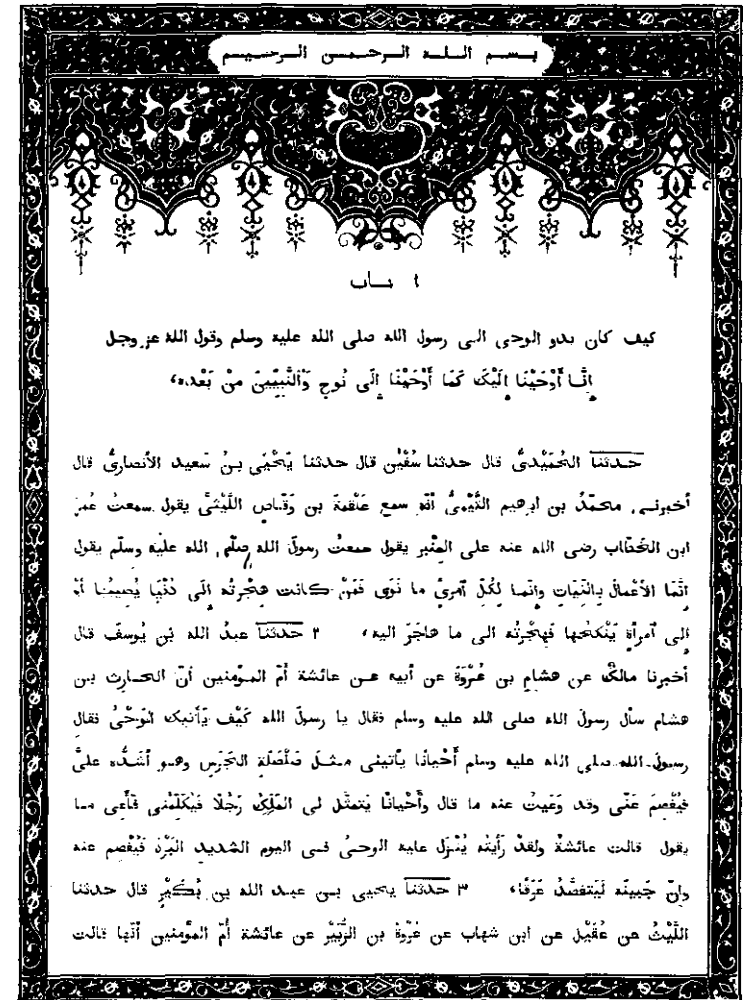 بسم الله الرحمن الرحيم
١ باب
كيف كان بدو الوحى الى رسول الله صلى الله عليه وسلم وقول الله عز وجل
إِنَّا أَوْحَيْنَا إِلَيْكَ كَمَا أَوْحَيْنَا إِلَى نُوحٍ وَٱلنَّبِيِّينَ مِنْ بَعْدِهِ،
حدثنا الحُمَيْدىُّ قال حدثنا سُفْيٰن قال حدثنا يَحْيَى بنُ سَعيد الأنصارىُّ قال
أخبرنى محمّدُ بن ابرهيم التَّيْمىُّ أنّه سمع عَلْقمةَ بن وَقّاص اللَّيْثىَّ يقول سمعتُ عُمَرَ
ابن الخَطّاب رضى الله عنه على المِنْبر يقول سمعتُ رسولَ الله صلّى الله عليه وسلّم يقول
إنَّما الأَعْمالُ بِالنّيّاتِ وإنّما لِكُلِّ ٱمرِئٍ ما نَوَى فَمَنْ كانت هِجْرتُه إلَى دُنْيَا يُصيبُها أَوْ
إلى ٱمرأةٍ يَنْكِحُها فهِجْرتُه الى ما هاجَرَ اليه، ٢ حدثنا عبدُ الله بْن يُوسفَ قال
أخبرنا مالكٌ عن هشامِ بن عُرْوَةَ عن أبيه عن عائشة أُمّ المؤمنين أنّ الحارث بن
هشام سأل رسولَ الله صلى الله عليه وسلم فقال يا رسولَ الله كَيْفَ يَأْتيك الوَحْىُ فقال
رسولُ الله صلى الله عليه وسلم أَحْيانًا يأتينى مثل صَلْصَلَةِ الجَرَسِ وهو أَشَدُّه علىَّ
فيُفْصَمُ عَنّى وقد وَعَيتُ عنه ما قال وأَحْيانًا يَتمثّل لى المَلَكُ رَجُلًا فيُكلّمُنى فأَعِى ما
يقول قالت عائشةُ ولقدْ رَأَيتُه يُنْزَل عليه الوحىُ فى اليوم الشديد البَرْدِ فيُفْصَم عنه
وإنّ جَبينَه لَيَتفصَّدُ عَرَقًا، ٣ حدثنا يحيى بن عبد الله بن بُكَيْرٍ قال حدثنا
اللَّيْثُ عن عُقَيْلٍ عن ابن شهاب عن عُرْوةَ بن الزُّبَيْر عن عائشة أُمّ المؤمنين أنّها قالت